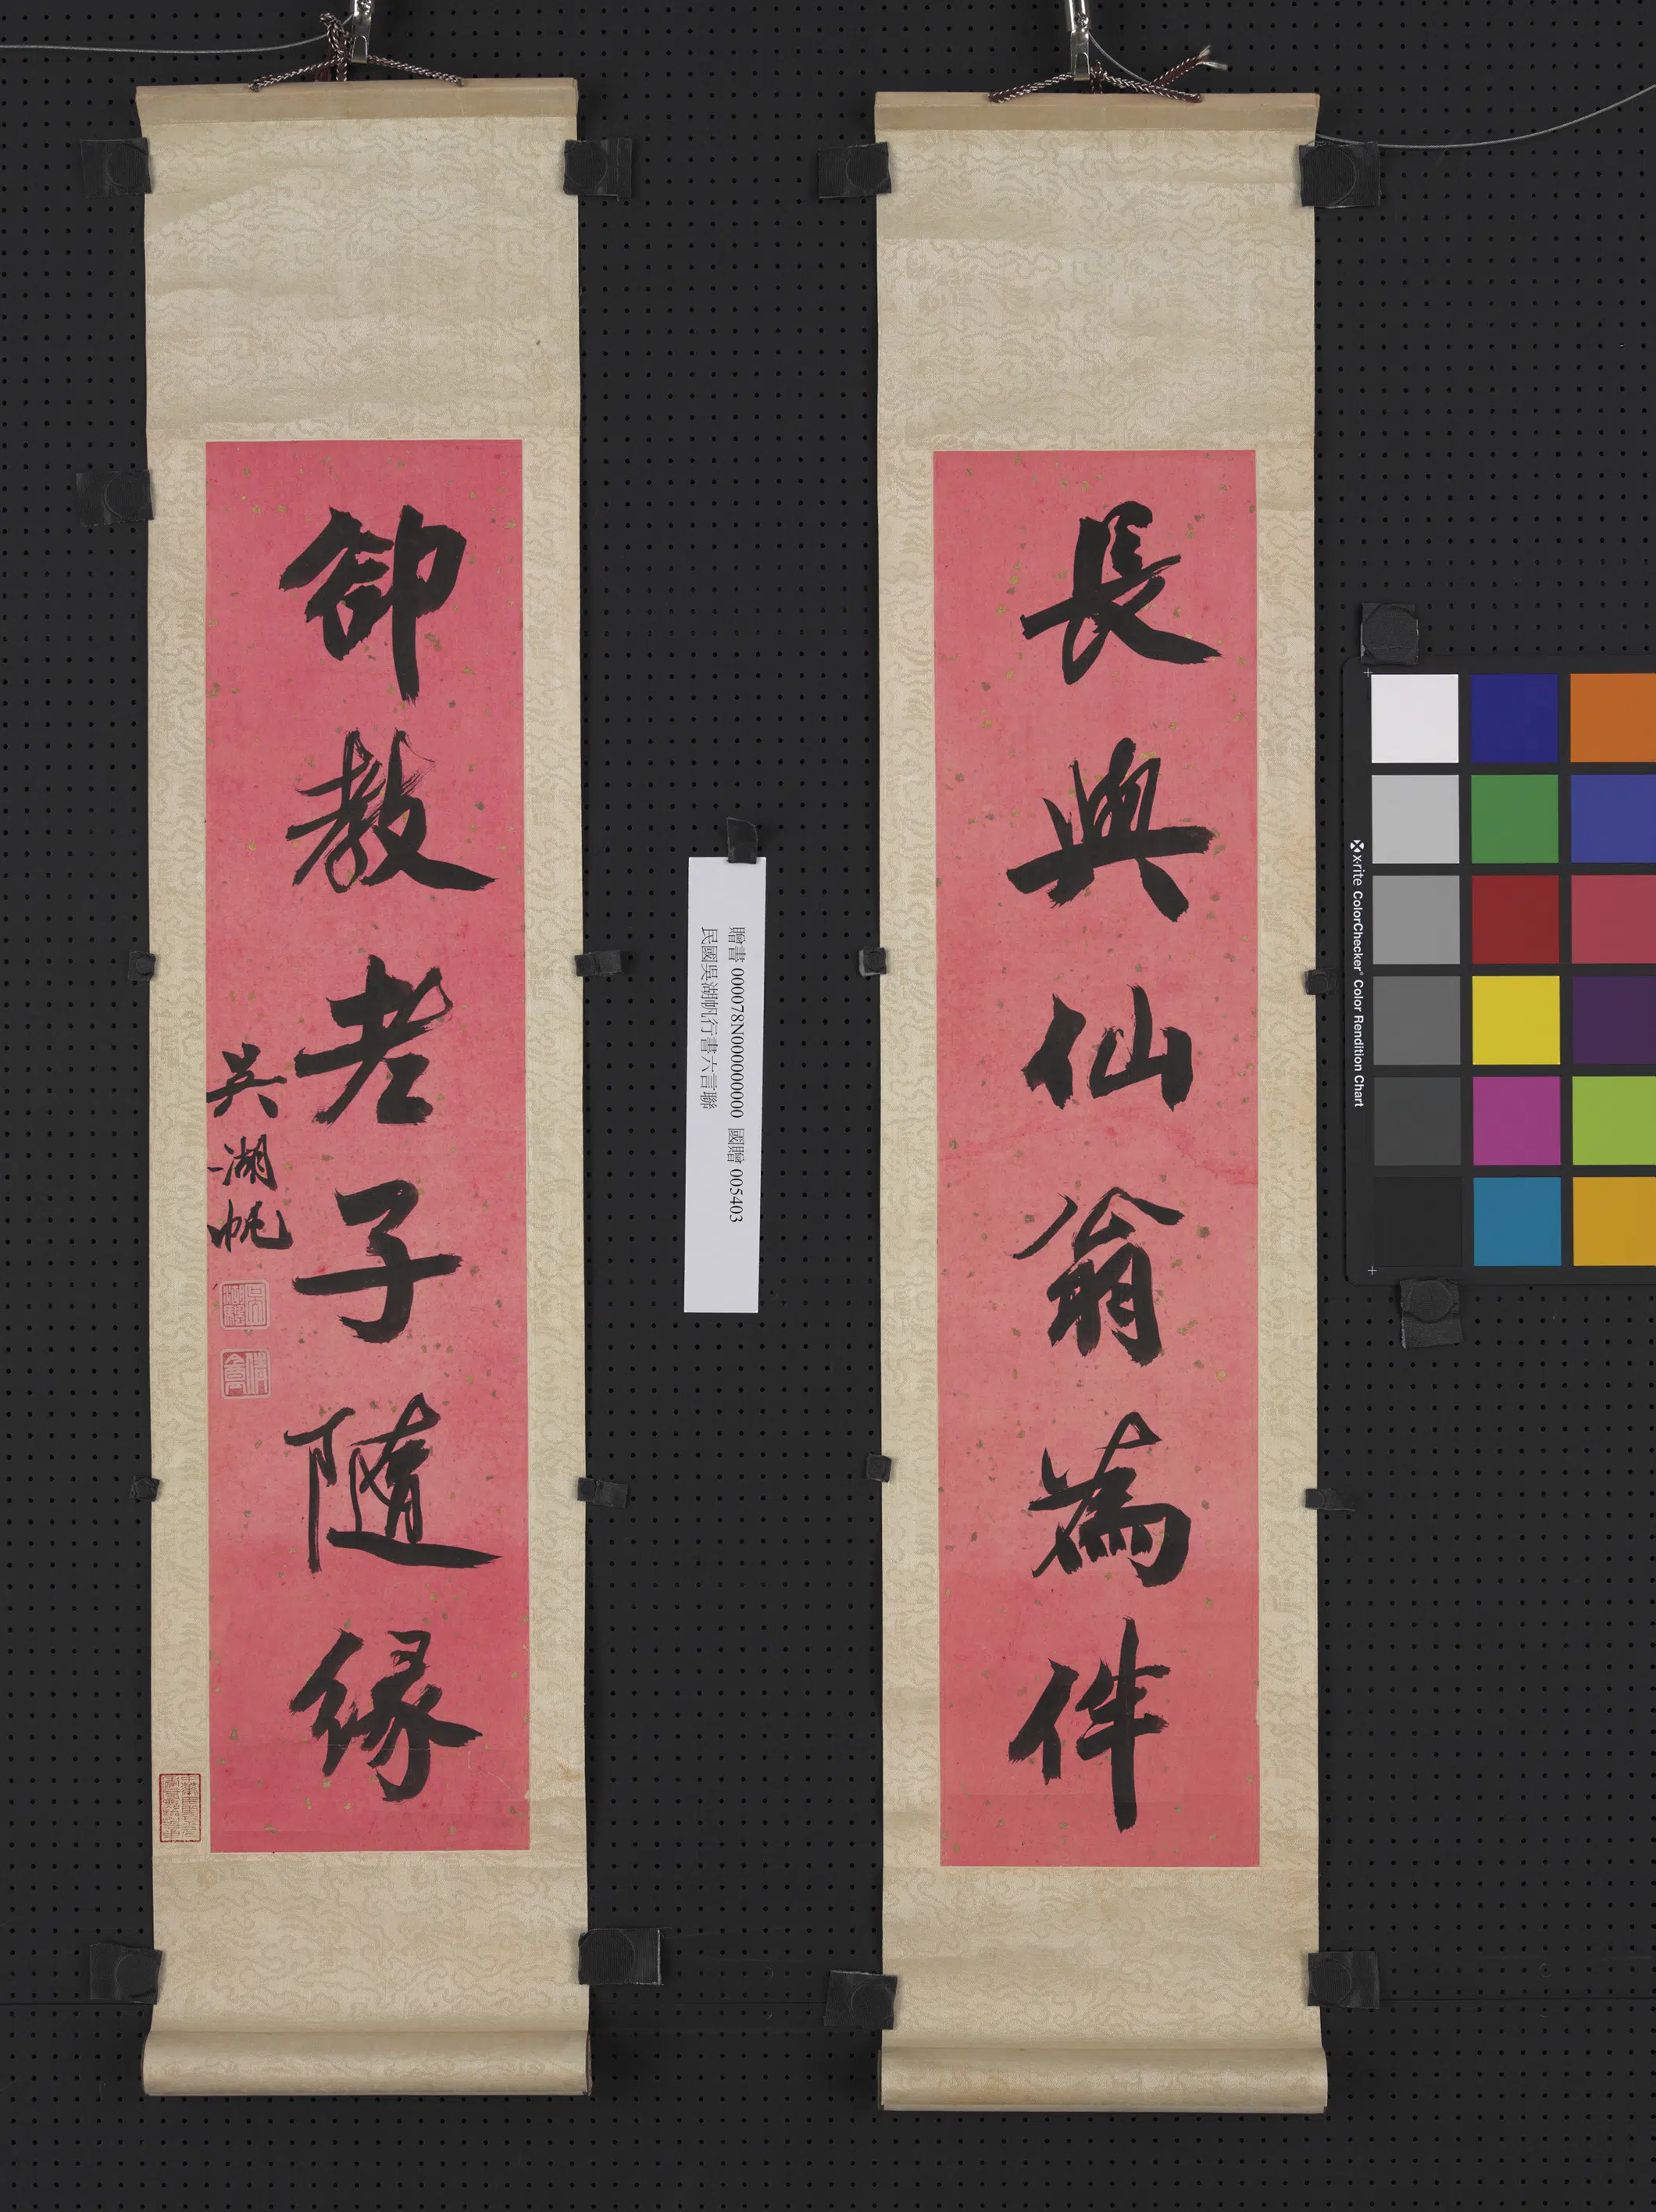 長與仙翁為伴
卻教老子隨緣
吳湖帆
贈書 000078N000000000 國贈 005403
民國吳湖帆行書六言聯
x-rite ColorChecker Color Rendition Chart